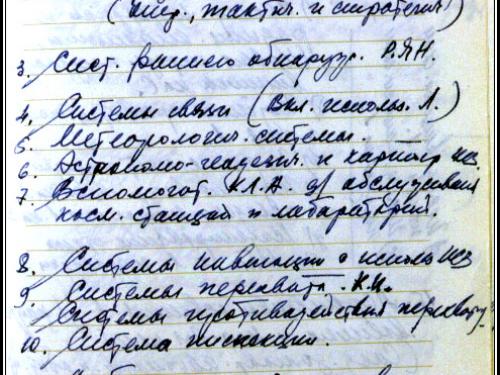 (опер., тактич. и стратегич.)
3. Сист. раннего обнаруж. Р.Я.Н.
4. Системы связи (вкл. использ. Л.)
5. Метеорологич. системы.
6. Астрономо-геодезич. и картогр. ИСЗ
7. Вспомогат. К.Л.А. для обслуживания
косм. станций и лабораторий.
8. Системы навигации с использ. ИСЗ
9. Системы перехвата. К.Ц.
Системы противодействия перехвату.
10. Система инспекции.